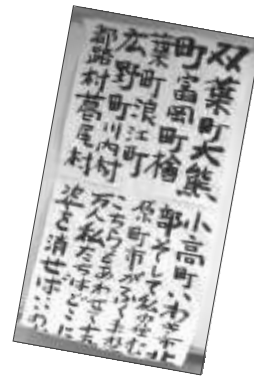 双葉町大熊
町富岡町楢
葉町浪江町
広野町川内村
都路村葛尾村
小高町いわき市北
部そして私の住む
原町市がふくまれ
こちらもあわせて七
万人私たちはどこに
姿を消せば…の